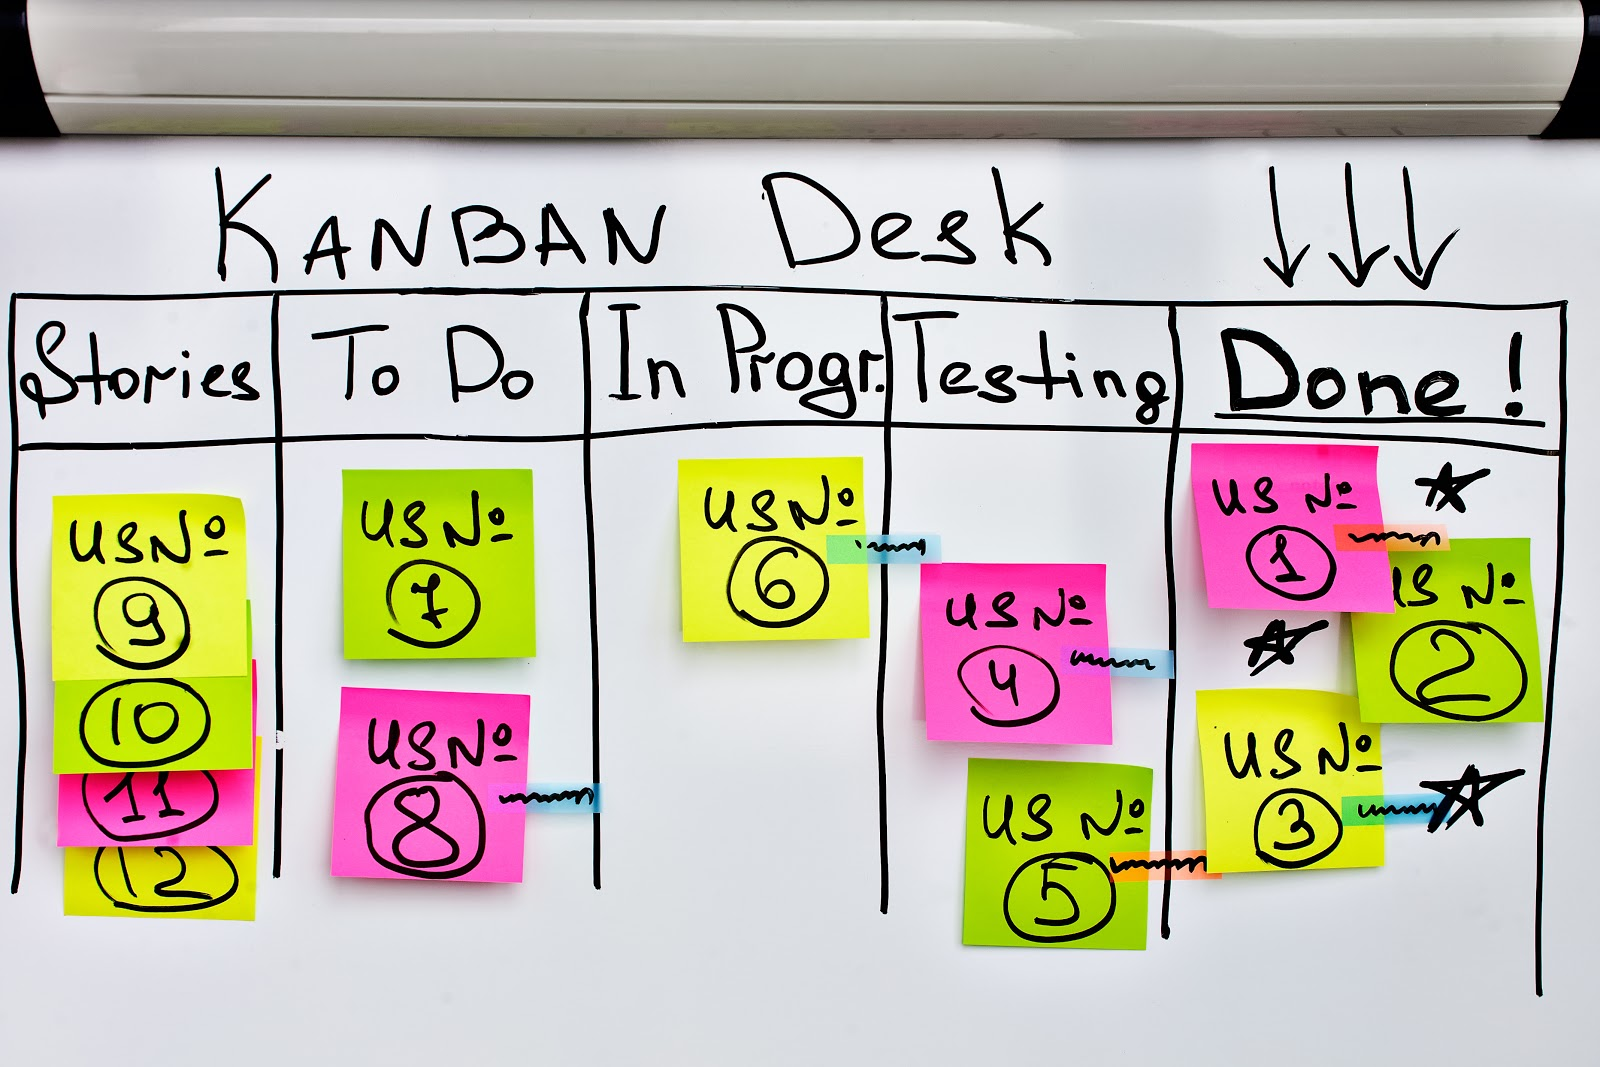 KANBAN Desk
Stories
To Do
In Progr.
Testing
Done!
US №
9
10
11
12
US №
7
US №
8
US №
6
US №
4
US №
5
US №
1
US №
2
US №
3